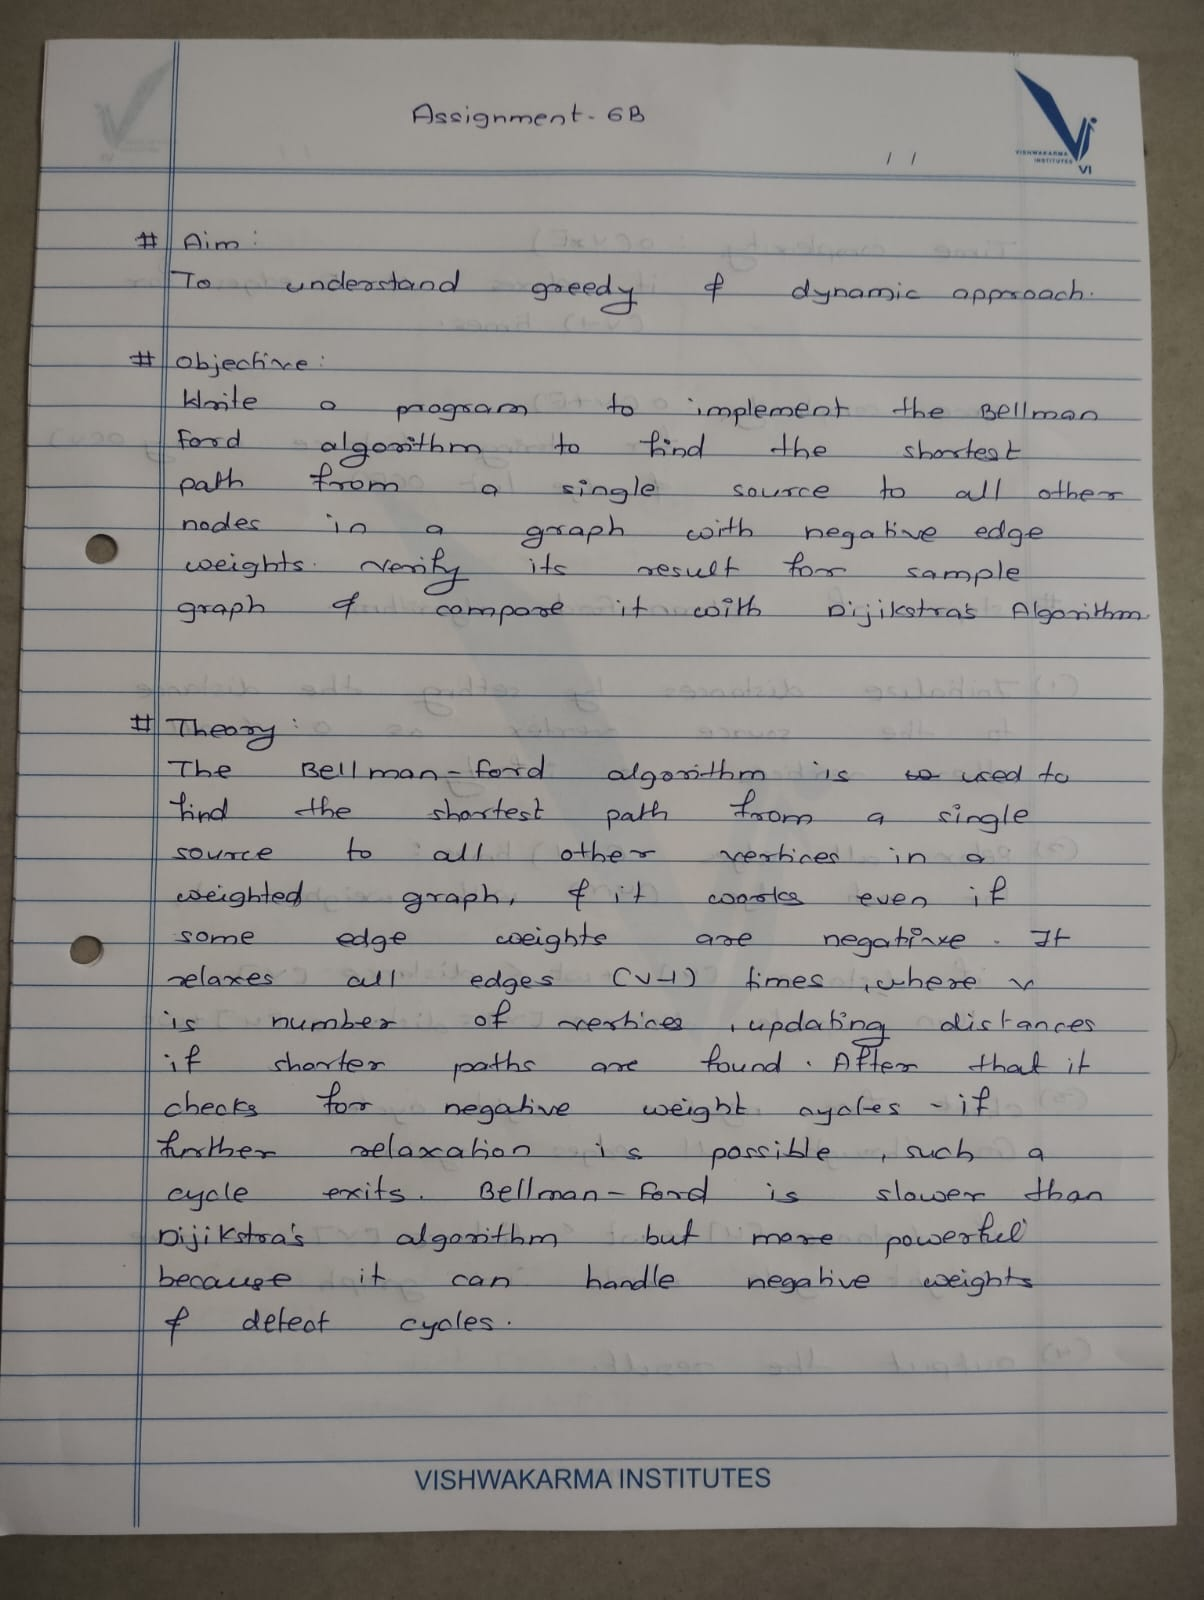 Assignment - 6B
/ /
VISHWAKARMA
INSTITUTES
VI
# Aim :
To understand greedy & dynamic approach.
# Objective :
Write a program to implement the Bellman
Ford algorithm to find the shortest
path from a single source to all other
nodes in a graph with negative edge
weights. Verify its result for sample
graph & compare it with Dijikstra's Algorithm
# Theory :
The Bellman-Ford algorithm is to used to
find the shortest path from a single
source to all other vertices in a
weighted graph, & it works even if
some edge weights are negative. It
relaxes all edges (V-1) times, where v
is number of vertices, updating distances
if shorter paths are found. After that it
checks for negative weight cycles - if
further relaxation is possible, such a
cycle exits. Bellman-Ford is slower than
Dijikstra's algorithm but more powerful
because it can handle negative weights
& detect cycles.
VISHWAKARMA INSTITUTES